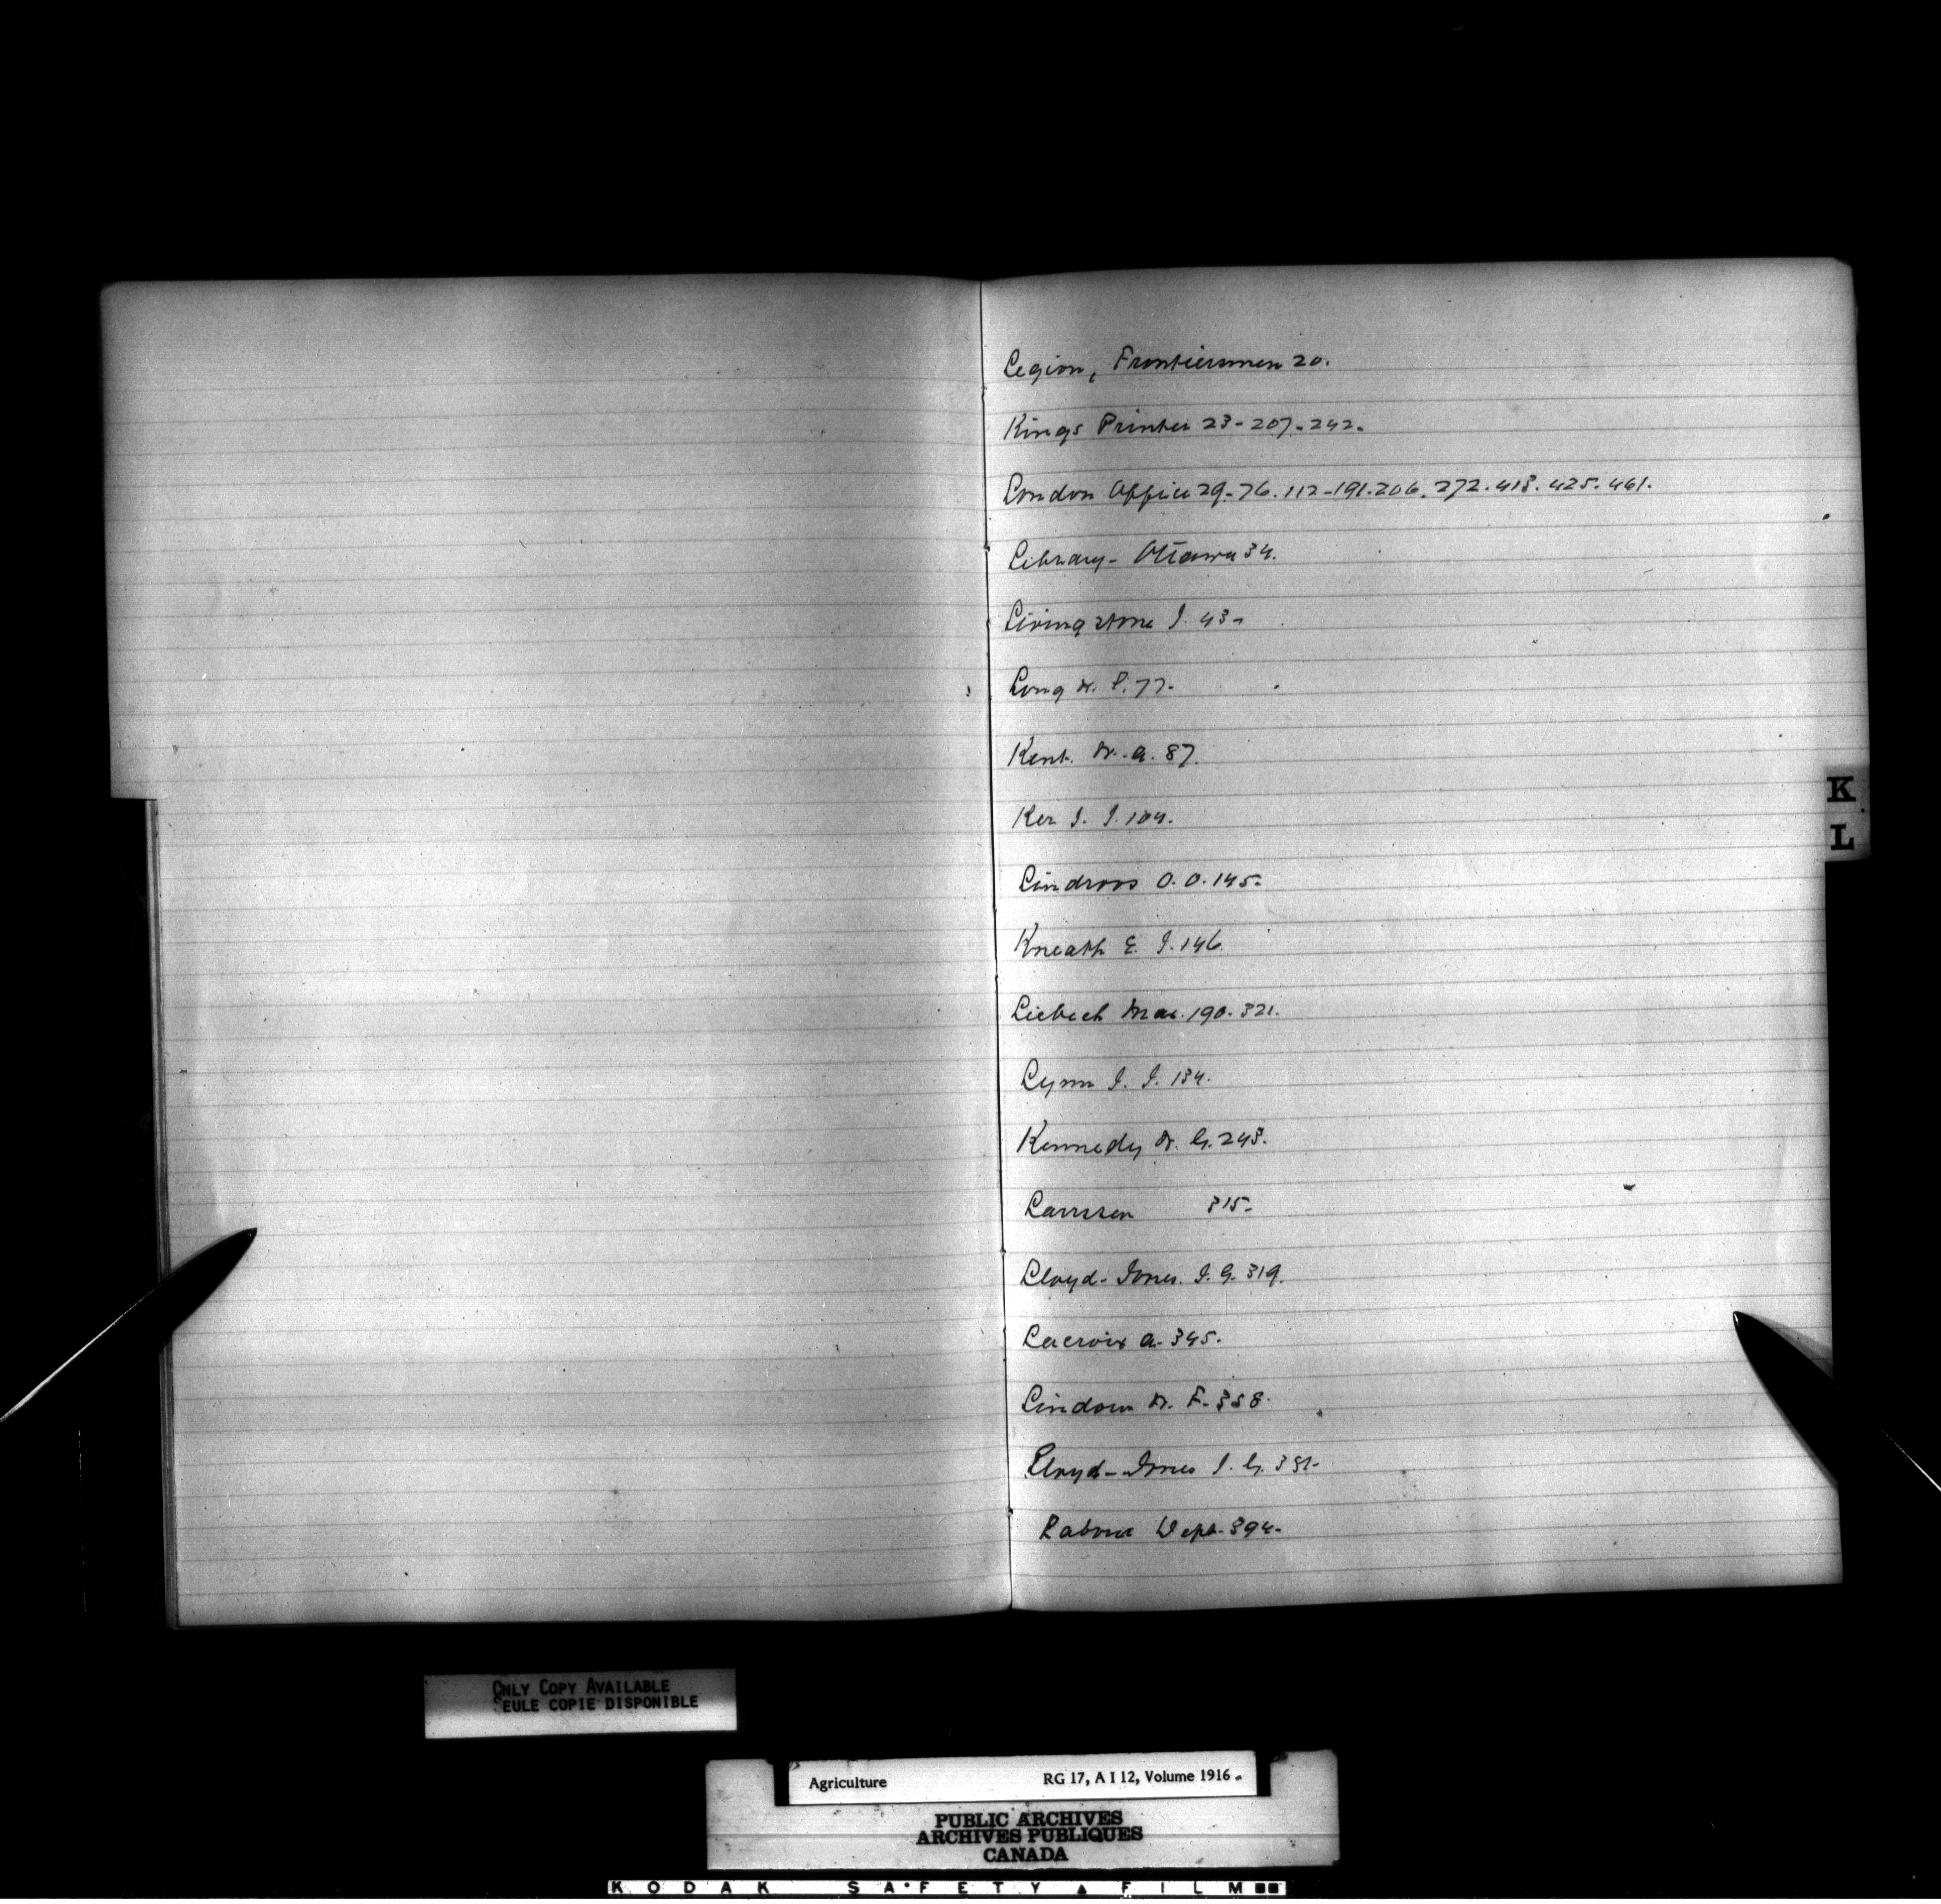 Legion, Frontiersmen 20.
Kings Printer 23-207-242.
London Office 29-76.112-191.206.272.413.425.461.
Library- Ottawa 34.
Livingstone J. 43-
Long W. P. 77.
Kent. W. A. 87.
Ker J. J. 104.
K
L
Lindroos O. O. 145-
Kneath E. J. 146.
Liebech Max. 190. 321.
Lynn J. J. 134.
Kennedy W. G. 243.
Laursen 315-
Lloyd-Jones. J. G. 319.
Lacroix A. 345.
Lindown W. F. 358.
Lloyd-Jones J. G. 381-
Labour Dept. 394-
ONLY COPY AVAILABLE
SEULE COPIE DISPONIBLE
Agriculture RG 17, A I 12, Volume 1916
PUBLIC ARCHIVES
ARCHIVES PUBLIQUES
CANADA
KODAK SAFETY FILM